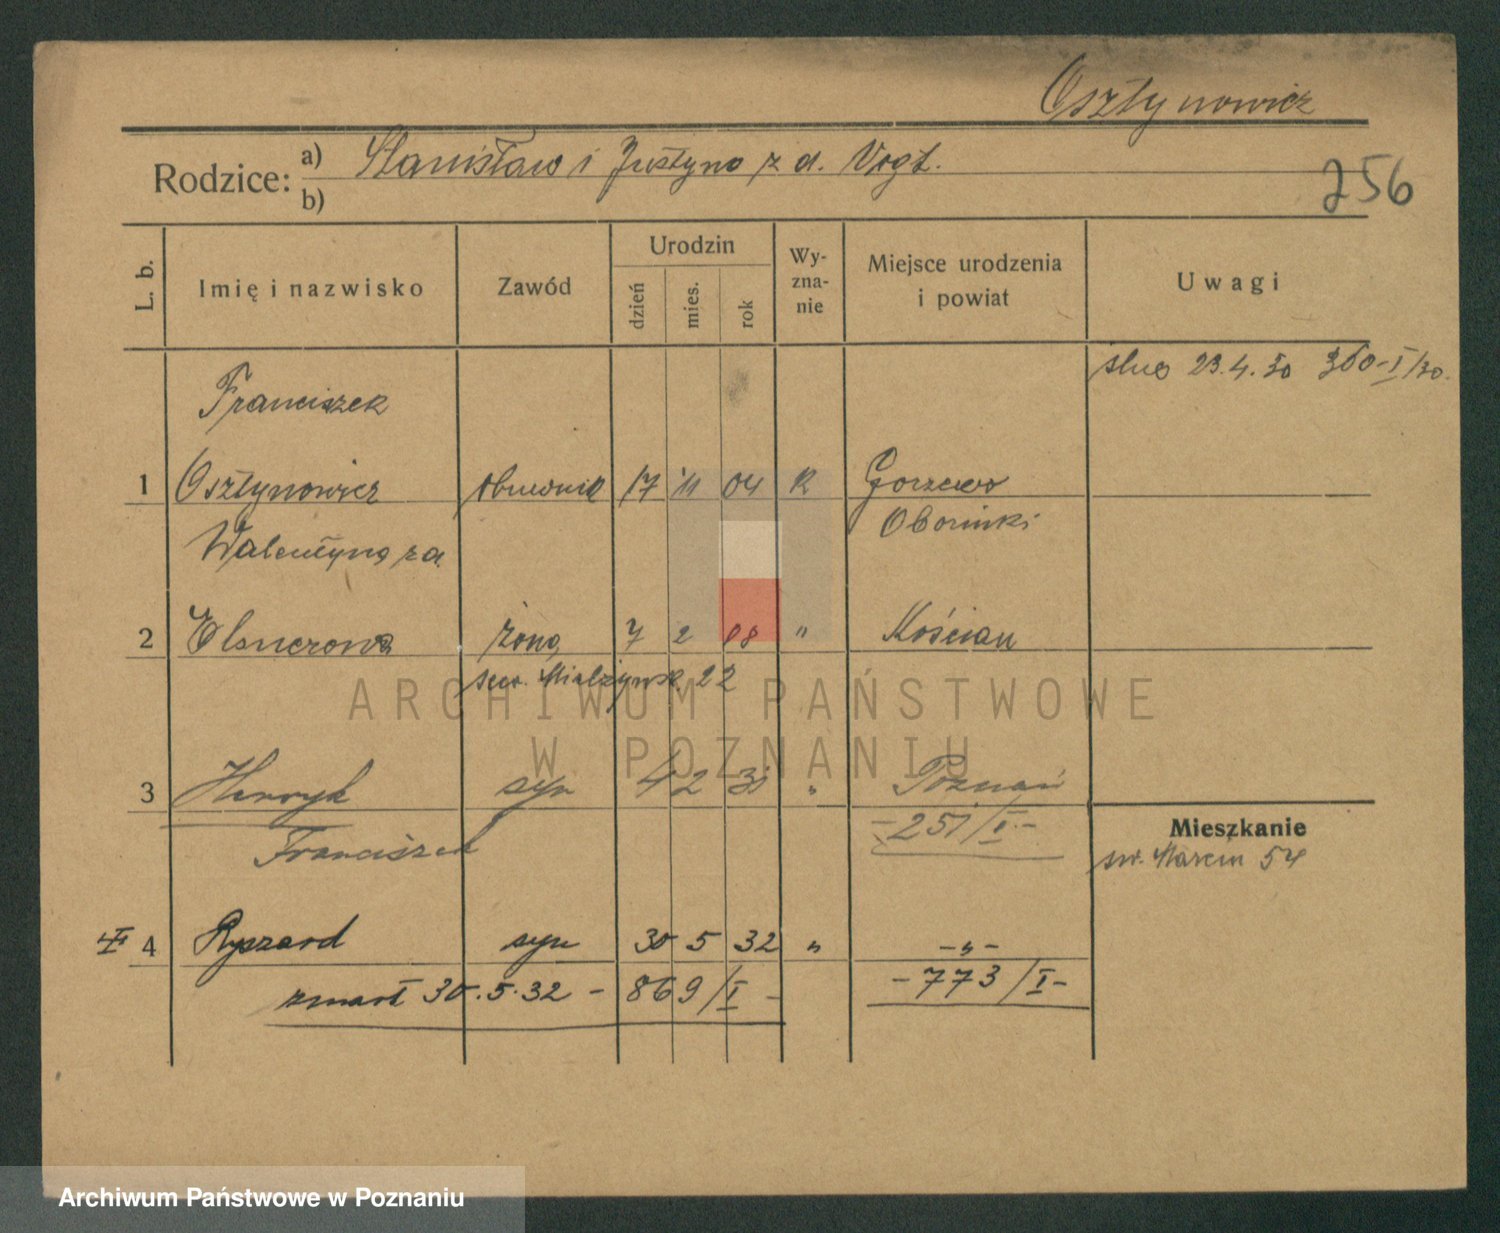 Osztynowicz
Rodzice: a) Stanisław i Justyna z d. Vogt.
b)
256
L. b.
Imię i nazwisko
Zawód
Urodzin
dzień
mies.
rok
Wy-
zna-
nie
Miejsce urodzenia
i powiat
Uwagi
ślub 23.4.30 360-I/30.
Franciszek
1 Osztynowicz 17 11 04 R Gorzewo
Oborniki
Walentyna z d.
2 Elsnerowa żona 7 2 08 " Kościan
22
3 Henryk syn 4 2 31 " Poznań
-251/I-
Franciszek
Mieszkanie
św. Marcin 54
4 Ryszard syn 30 5 32 " -"-
zmarł 30.5.32 - 869/I - -773/I-
ARCHIWUM PAŃSTWOWE
W POZNANIU
Archiwum Państwowe w Poznaniu